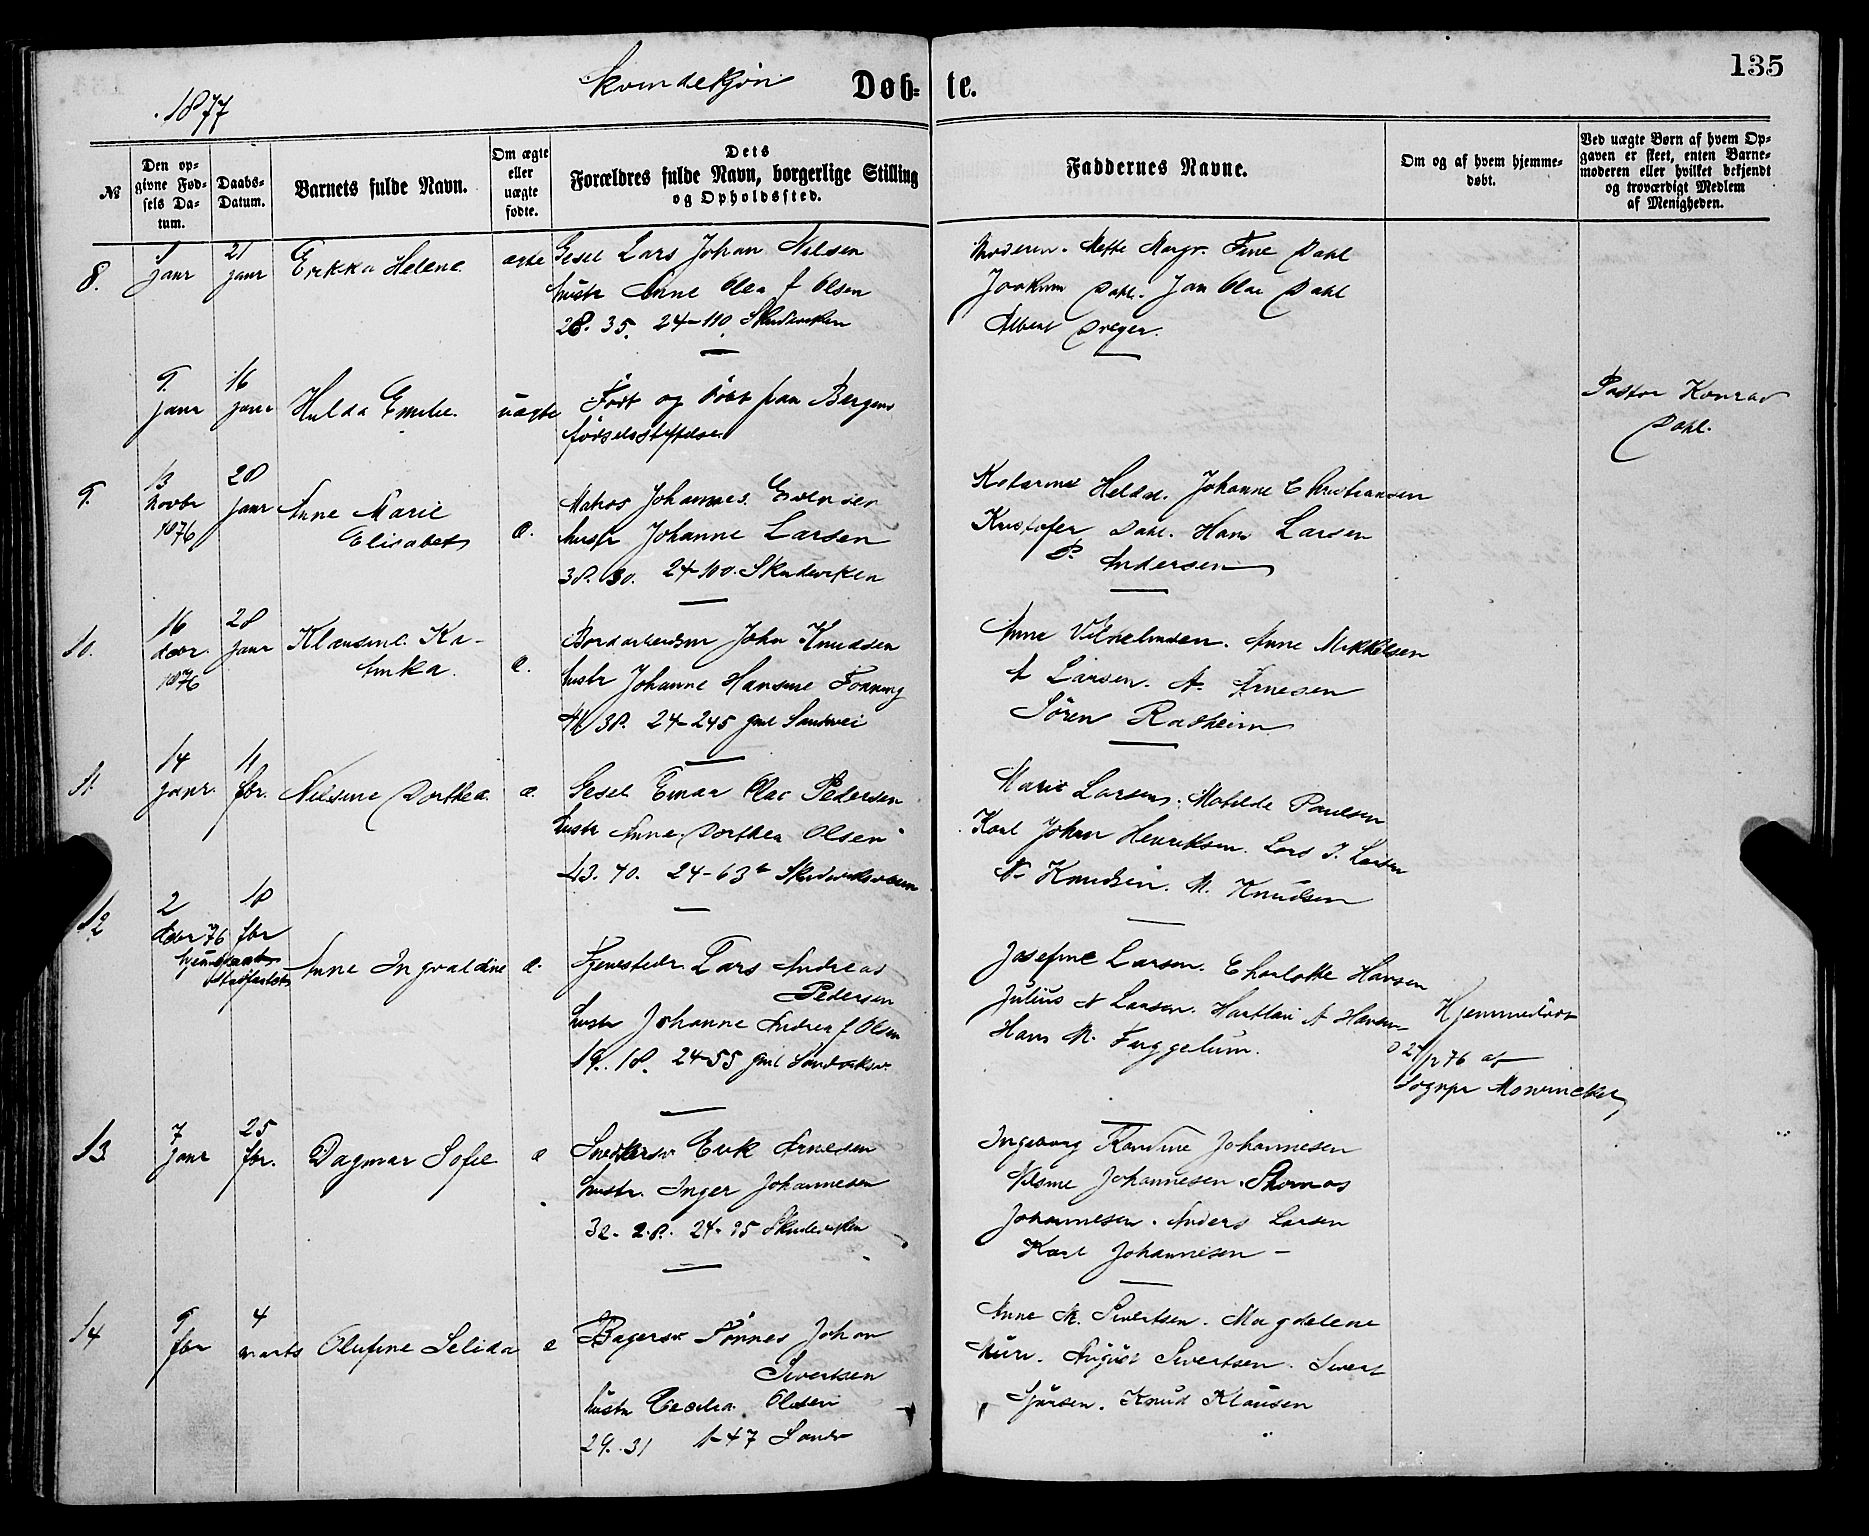 135
Kvindekjøn
Døb-te.
1877
№
Den op-
givne Fød-
sels Da-
tum.
Daabs-
Datum.
Barnets fulde Navn.
Om ægte
eller
uægte
fødte.
Dets
Forældres fulde Navn, borgerlige Stilling
og Opholdssted.
Faddernes Navne.
Om og af hvem hjemme-
døbt.
Ved uægte Børn af hvem Op-
gaven er skeet, enten Barne-
moderen eller hvilket bekjendt
og troværdigt Medlem
af Menigheden.
8.
1
janr
21
janr
Erikka Helene
ægte
Gesel Lars Johan Nilsen
hustr Anne Olea f Olsen
28. 35. 24-110. Skudeviken
Moderen. Mette Margr. Fine Dahl
Joakim Dahl. Jan Olai Dahl
Albert Dreyer.
9.
janr
16
janr
Hulda Emilie.
uægte
Født og døbt paa Bergens
fødselsstiftelse
Pastor Konrad
Dahl.
9.
13
novbr
1876
28
janr
Anne Marie
Elisabet
æ.
Matros Johannes Evensen
hustr Johanne Larsen
38. 30. 24-110. Skudeviken
Johanne Christiansen
Kristofer Dahl. Hans Larsen
P. Andersen
10.
16
decbr
1876
28
janr
Klausine Ka-
trinka.
æ.
John Knudsen
hustr Johanne Hansine Fonning
41 38. 24-245 gml Sandvei
Anne Vilhelmsen. Anne Mikkelsen
A Larsen. A. Arnesen
Sören Rasheim
11.
14
janr.
11
fbr.
Nilsine Dorthea.
æ.
Gesel Einar Olai Pedersen
hustr Anne Dorthea Olsen
43. 40. 24-63b
Marie Larsen. Matilde Paulsen
Karl Johan Henriksen. Lars J. Larsen
N. Knudsen. M. Knudsen
12
2
decbr 76
18
fbr
Anne Ingvaldine
æ.
Lars Andreas
Pedersen
hustr Johanne Andrea f. Olsen
19. 18. 24-55 gml Sandviksv.
Josefine Larsen. Charlotte Hansen
Julius N Larsen. A Hansen
Hans M.
Hjemmedöbt
27/12 76 af
Sognpr Mowinckel
13
7
janr
25
fbr.
Dagmar Sofie
æ
Snedkersv Erik Arnesen
hustr. Inger Johannesen
32. 28. 24-95 Skudeviken
Ingeborg Karoline Johannesen
Nilsine Johannesen. Thomas
Johannesen. Anders Larsen
Karl Johannesen -
14
9
fbr
4
marts
Olufine Selida
æ
Bagersv Tönnes Johan
Sivertsen
hustr Cecilia Olsen
29. 31 1-47 Sandv
Anne M. Sivertsen. Magdelene
August Sivertsen. Sivert
Sjursen. Knud Klausen